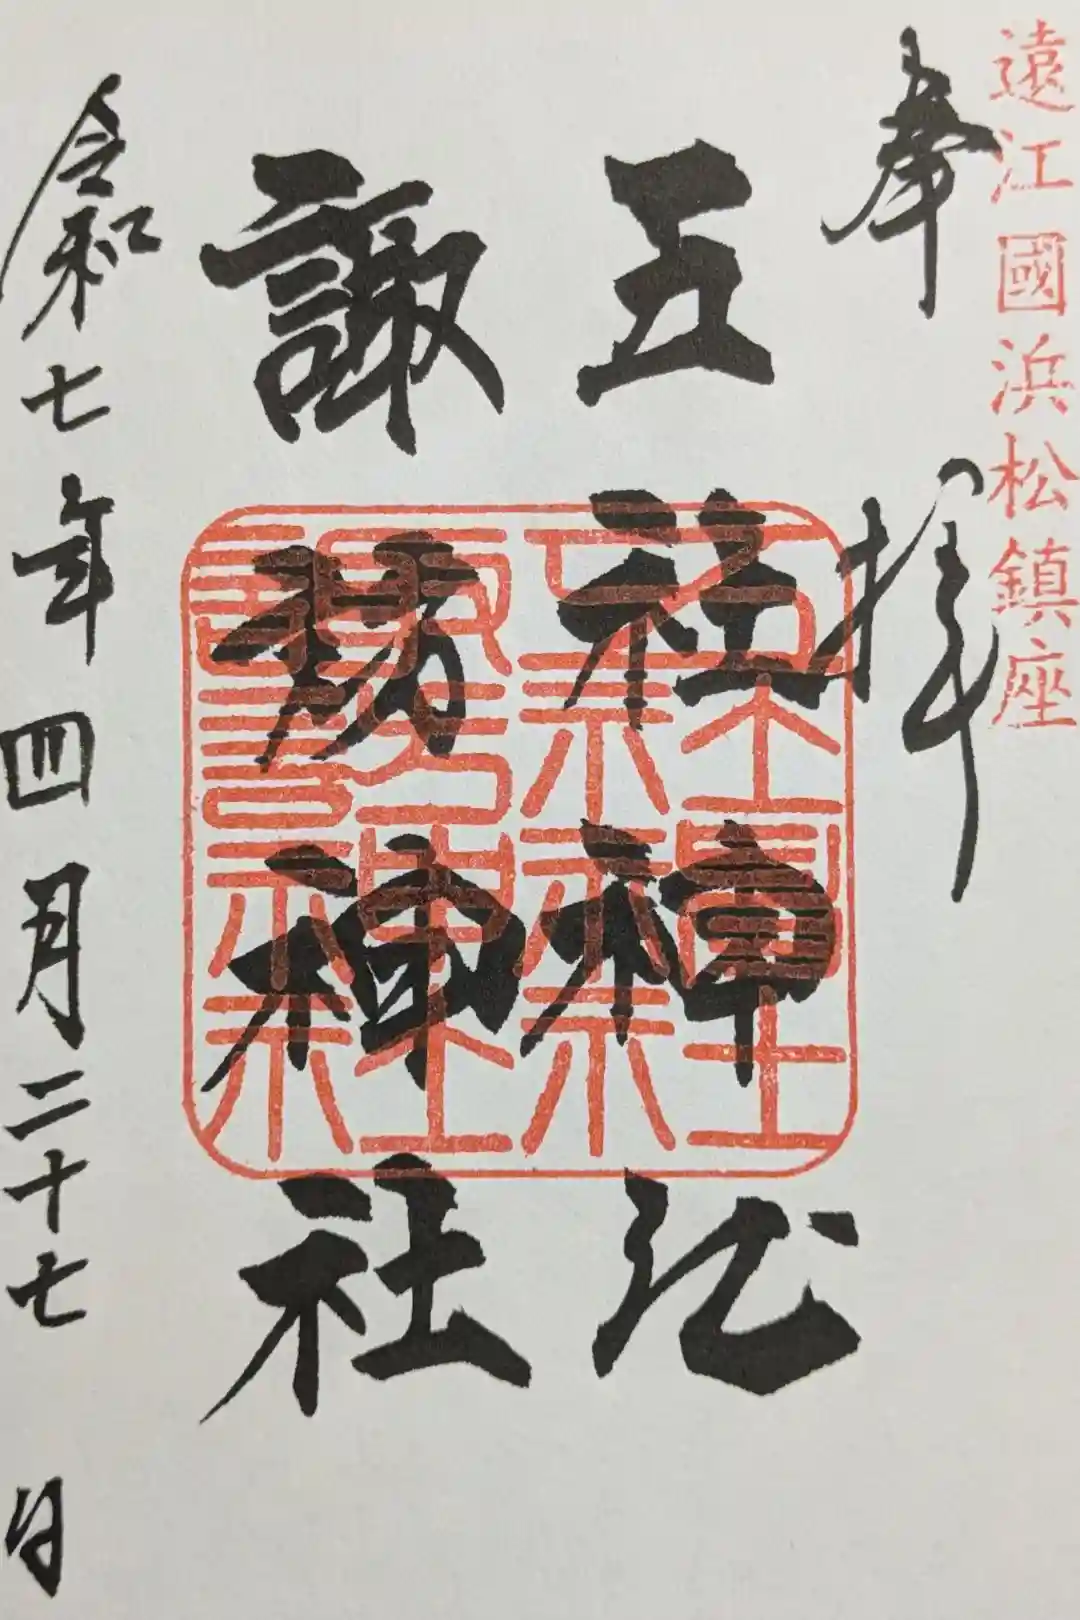 遠江國浜松鎮座
奉拝
五社神社
諏訪神社
五社神社
諏訪神社
令和七年四月二十七日